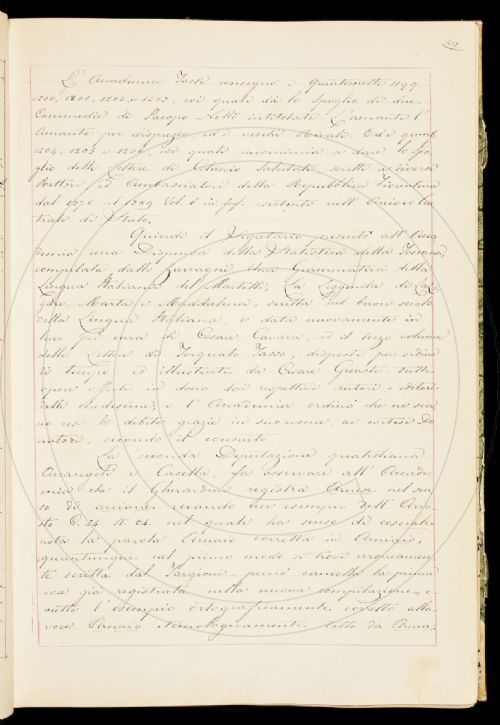 L'Accademico Tassi consegnò i Quinternetti 1199.
1200, 1201, 1202, e 1203, coi quali dà lo Spoglio di due
Commedie di Jacopo Nelli intitolate L'amante l'
Amante per dispregio, ed i vecchi Rivali. Ed i quint.
1204, 1205 e 1206, coi quali incomincia a dare lo Spo-
glio delle Lettere di Coluccio Salutati, scritte a diversi
Rettori ed Ambasciatori della Repubblica Fiorentina
dal 1378 al 1389 Vol. 6 in fog. esistente nell'Archivio Cen-
trale di Stato.
Quindi il Segretario presentò all'Acca-
demia una Dispensa della Statistica della Toscana,
compilata dallo Zuccagni; altra Grammatica della
Lingua Italiana del Mastelli; La Leggenda di
Marta e Maddalena, scritta nel buon secolo
della Lingua Italiana, e data nuovamente in
luce per cura di Cesare Cavara, ed il terzo volume
delle Lettere di Torquato Tasso, disposte per ordine
di tempo ed illustrate da Cesare Guasti, tutte
opere offerte in dono dai respettivi autori e editori
delle medesime; e l'Accademia ordinò che ne sia-
no rese le debite grazie in suo nome, ai cortesi Do
natori, secondo il consueto.
La seconda Deputazione quotidiana
Arcangeli e Casella, fa osservare all'Accade-
mia che il Gherardini registra Arnese nel sen-
so di arcione recando un esempio dell'Ario
sto C. 24 St. 64. nel quale ha senso di
nota la parola Arnaro corretta in Arnigio,
quantunque nel primo modo si trovi erroneamen-
te scritta dal Targioni. perciò cancella la prima
voce già registrata nella nuova compilazione, e
mette l'esempio ortograficamente corretto alla
voce Arnaio etimologicamente detto da Arnia.